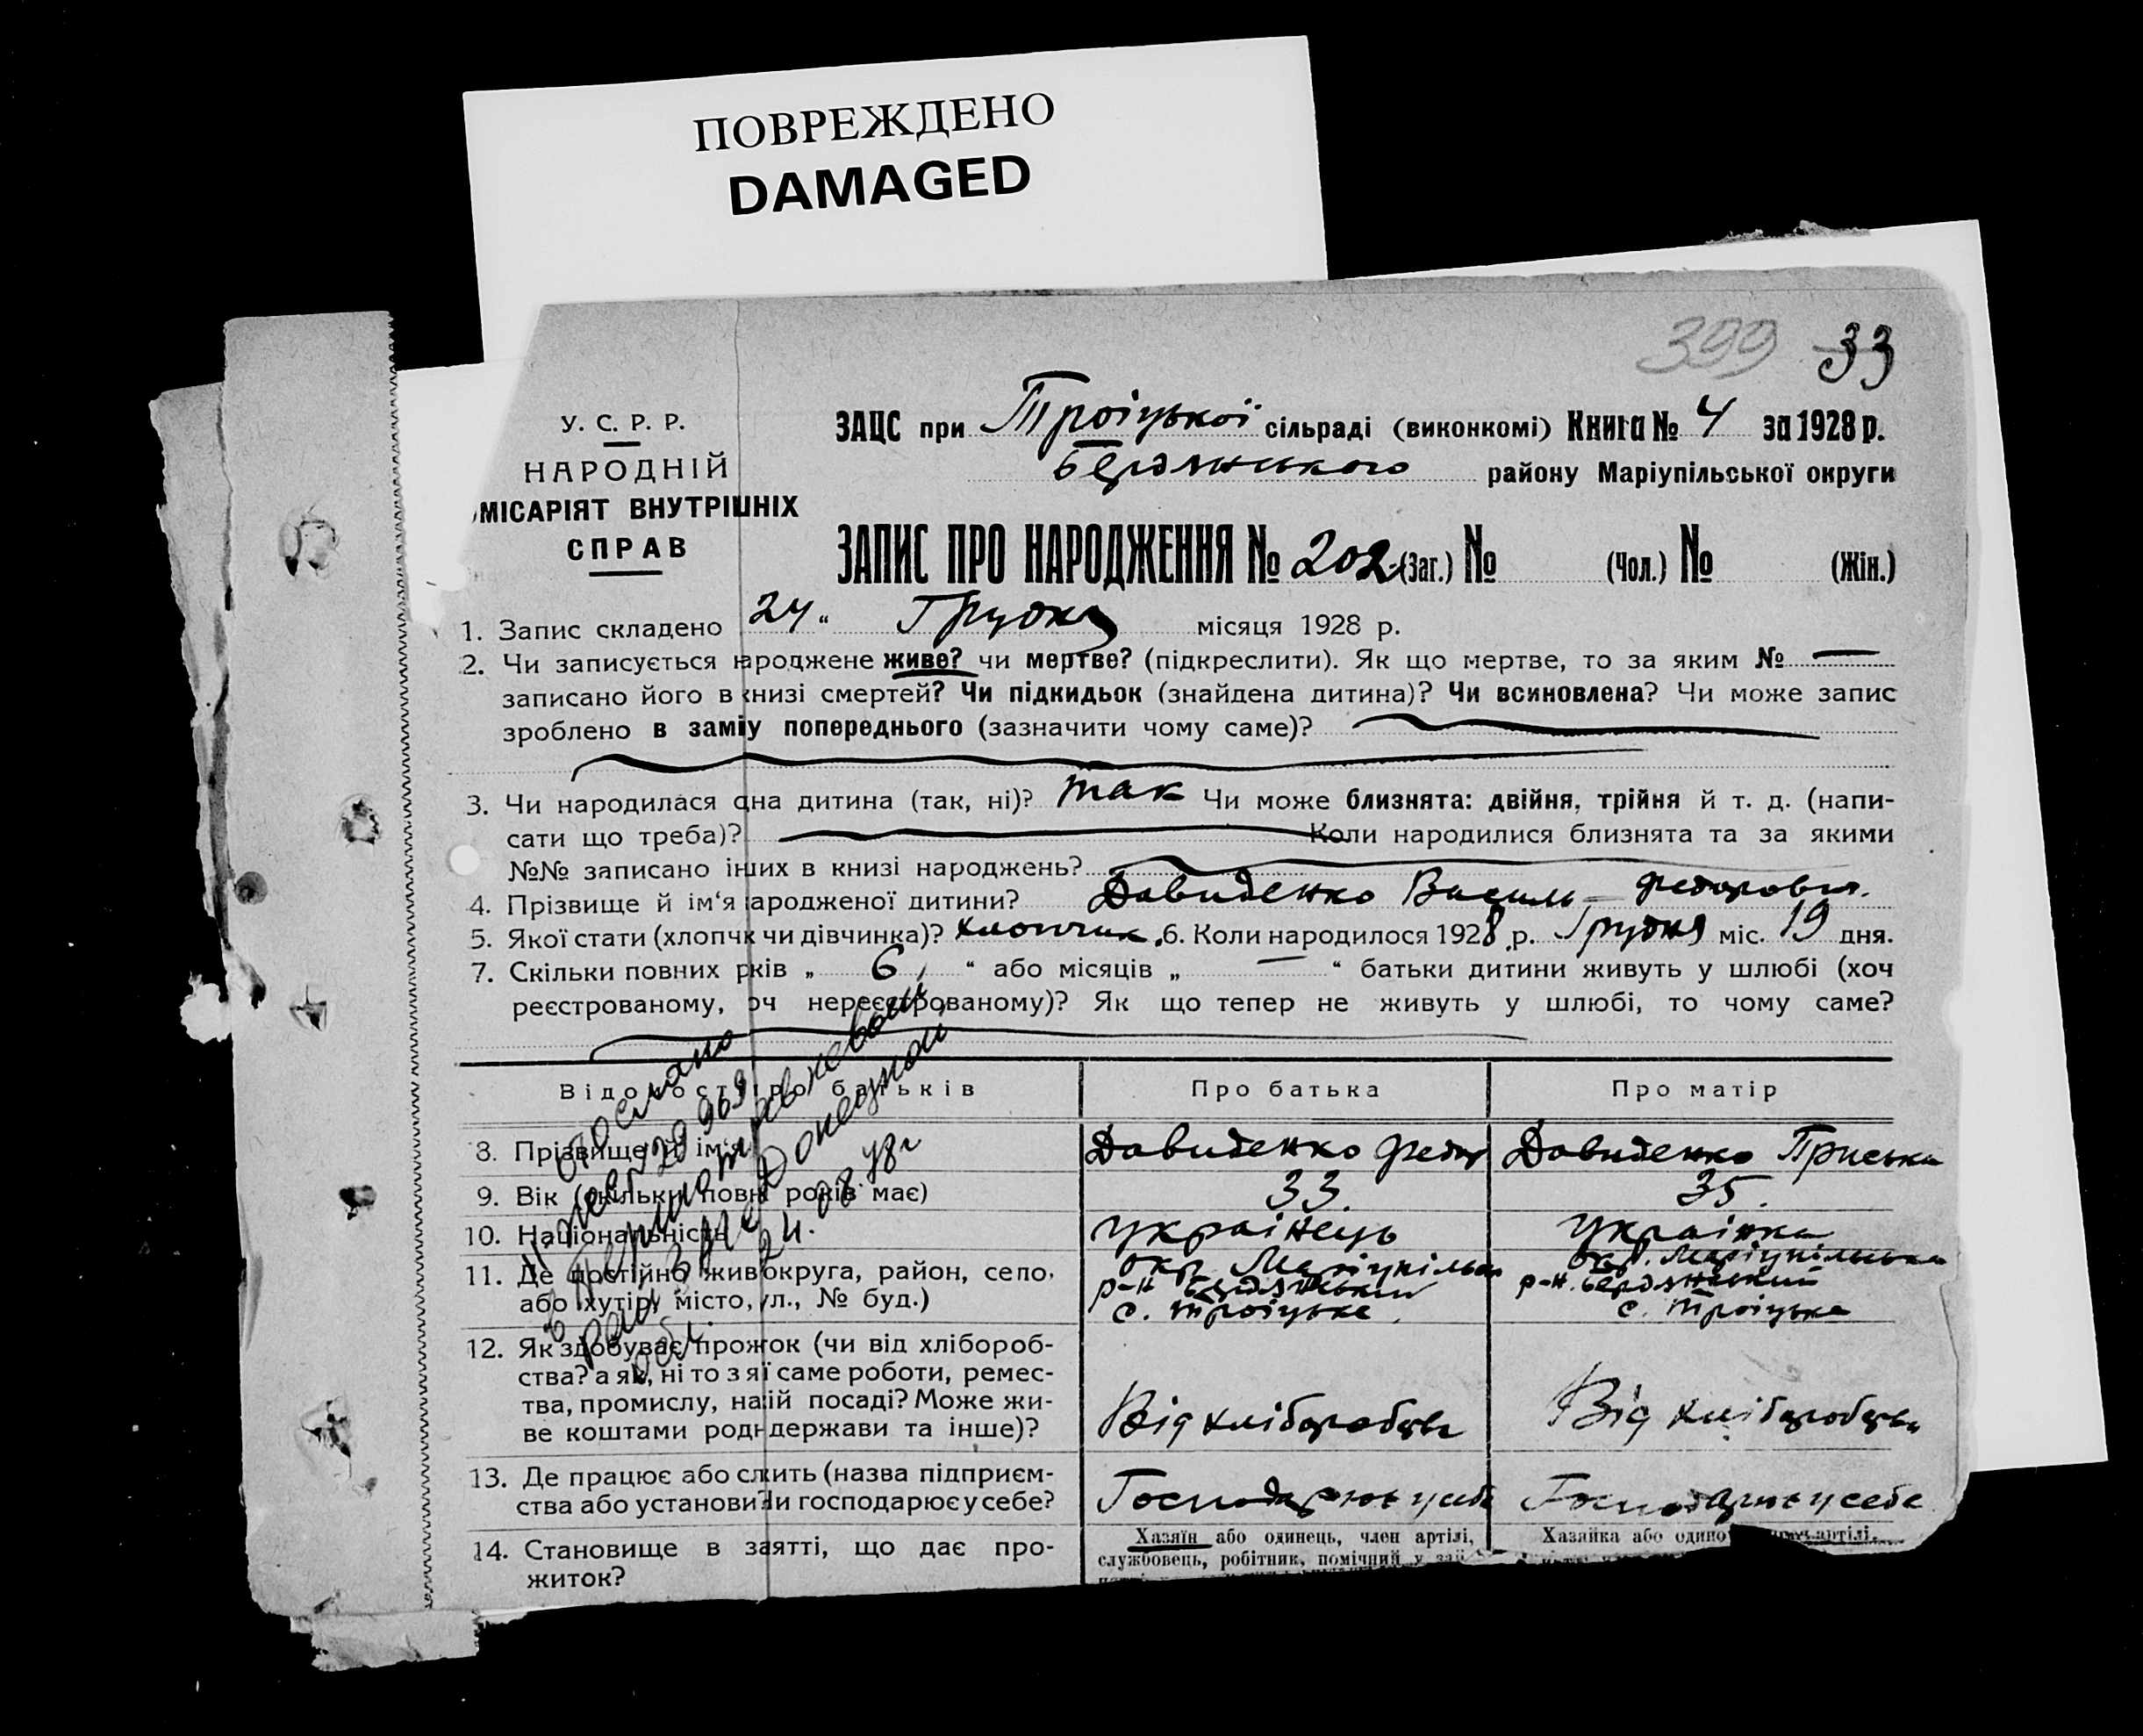 ПОВРЕЖДЕНО
DAMAGED
399 33
У. С. Р. Р.
НАРОДНІЙ
МІСАРІЯТ ВНУТРІШНІХ
СПРАВ
ЗАЦС при Троіцькоі сільраді (виконкомі) Книга № 4 за 1928 р.
Бердянського району Маріупільської округи
ЗАПИС ПРО НАРОДЖЕННЯ № 202 (Заг.) № (Чол.) № (Жін.)
1. Запис складено 24 " Грудня місяця 1928 р.
2. Чи записується народжене живе? чи мертве? (підкреслити). Як що мертве, то за яким № —
записано його в книзі смертей? Чи підкидьок (знайдена дитина)? Чи всиновлена? Чи може запис
зроблено в заміу попереднього (зазначити чому саме)?
3. Чи народилася одна дитина (так, ні)? Так Чи може близнята: двійня, трійня й т. д. (напи-
сати що треба)? Коли народилися близнята та за якими
№№ записано інших в книзі народжень?
4. Прізвище й ім'я народженої дитини? Давиденко Василь Федорович
5. Якої статі (хлопчк чи дівчинка)? хлопчик. 6. Коли народилося 1928 р. Грудня міс. 19 дня.
7. Скільки повних рків „ 6 " або місяців „ — " батьки дитини живуть у шлюбі (хоч
реєстрованому, оч нереєстрованому)? Як що тепер не живуть у шлюбі, то чому саме?
Відомості про батьків Про батька Про матір
8. Прізвище й ім'я Давиденко Федір Давиденко Приська
9. Вік (скільки повн років має) 33. 35.
10. Національність Украінець Украінка
11. Де постійно жив округа, район, село, окр. Маріупільська окр. Маріупільська
р-н Бердянський р-н. Бердянський
або хутір, місто, ул., № буд.) с. Троіцьке с. Троіцьке
12. Як здобуває прожок (чи від хлібороб-
ства? а як, ні то з яї саме роботи, ремес-
тва, промислу, на ій посаді? Може жи-
ве коштами роди держави та інше)? Від хліборобства Від хліборобства
13. Де працює або слжить (назва підприєм-
ства або установи? Чи господарює у себе? Господарює у себе Господарює у себе
14. Становище в заятті, що дає про-
житок?
Хазяїн або одинець, член артілі,
службовець, робітник, помічний у
Хазяйка або одино артілі,
Выслано
24. 08 48 г
обл.